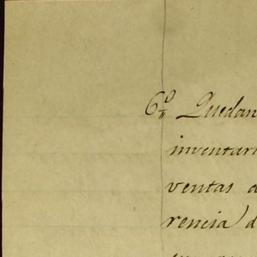 6º Quedan
inventari
ventas d
rencia d